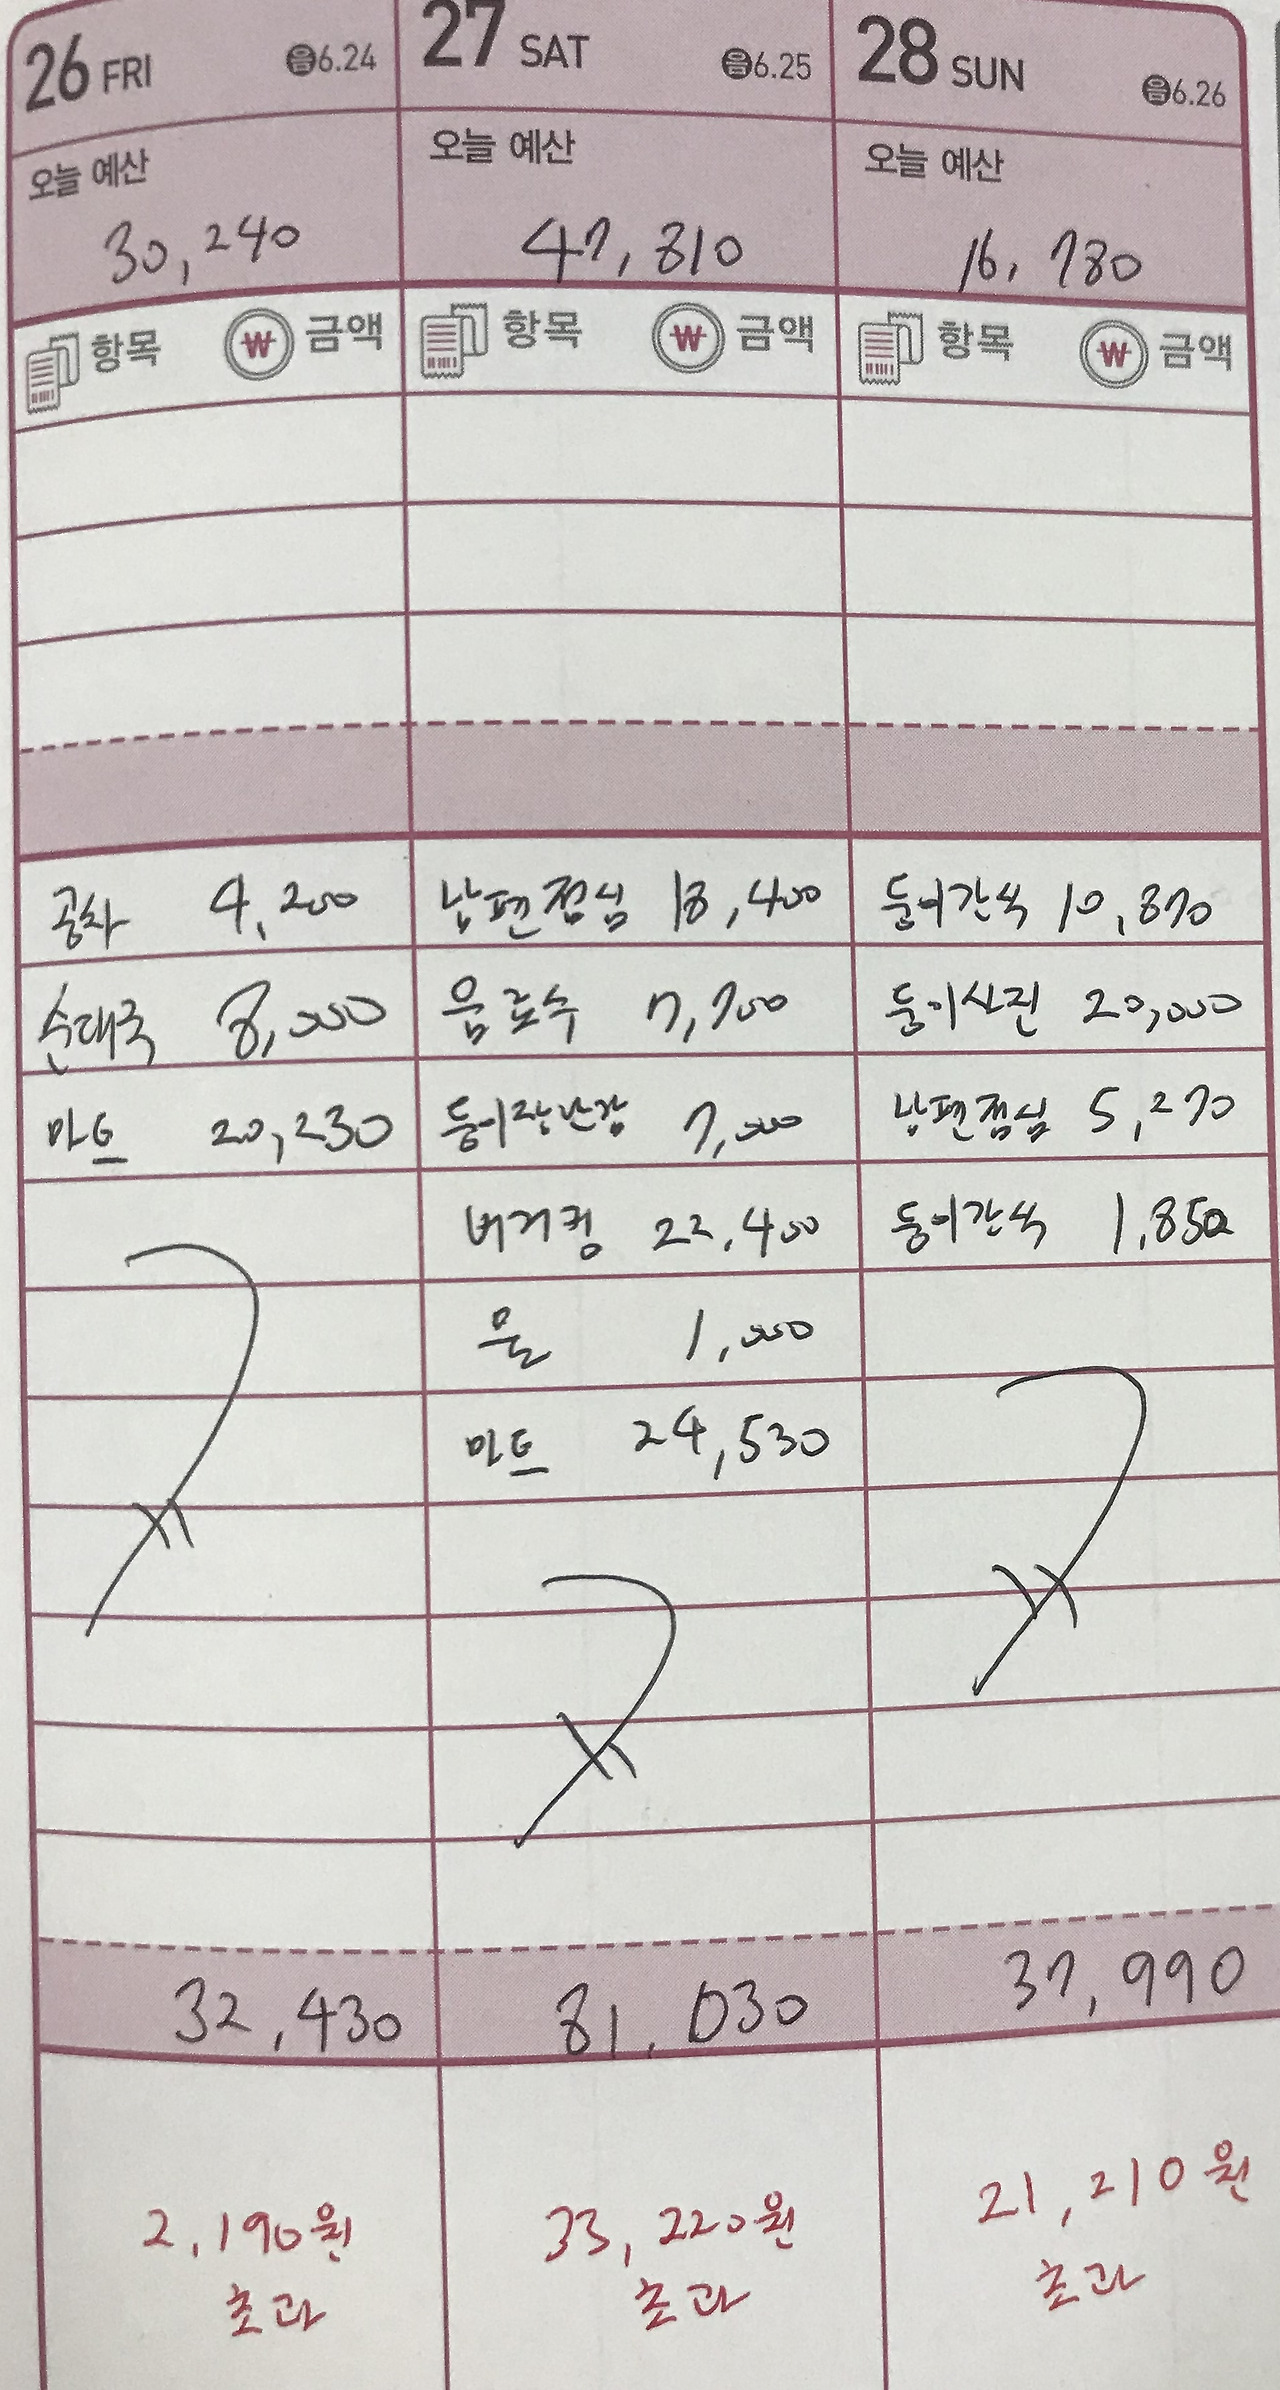 26 FRI 음6.24
오늘 예산
30,240
항목 ₩ 금액
공차 4,200
순대국 8,000
마트 20,230
32,430
2,190원
초과
27 SAT 음6.25
오늘 예산
47,810
항목 ₩ 금액
남편점심 18,400
음료수 7,700
둥이장난감 7,000
버거킹 22,400
물 1,000
마트 24,530
81,030
33,220원
초과
28 SUN 음6.26
오늘 예산
16,780
항목 ₩ 금액
둥이간식 10,870
둥이사진 20,000
남편점심 5,270
둥이간식 1,850
37,990
21,210원
초과